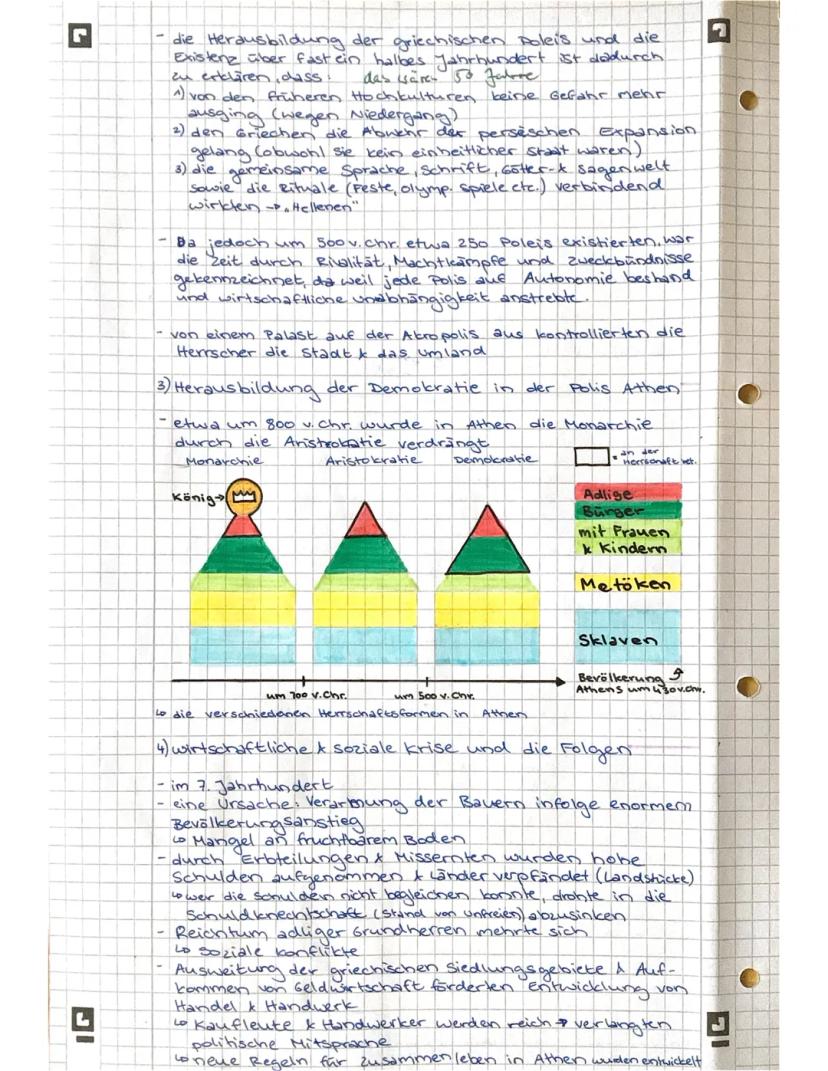 - die Herausbildung der griechischen Poleis und die
Existenz über fast ein halbes Jahrhundert ist dadurch
zu erklären, dass: das wären 50 Jahre
1) von den früheren Hochkulturen keine Gefahr mehr
ausging (wegen Niedergang)
2) den Griechen die Abwehr der persischen Expansion
gelang (obwohl sie kein einheitlicher Staat waren)
3) die gemeinsame Sprache, Schrift, Götter- & Sagenwelt
sowie die Rituale (Feste, olymp. Spiele etc.) verbindend
wirkten → „Hellenen"
- Da jedoch um 500 v. Chr. etwa 250 Poleis existierten, war
die Zeit durch Rivalität, Machtkämpfe und Zweckbündnisse
gekennzeichnet, weil jede Polis auf Autonomie bestand
und wirtschaftliche Unabhängigkeit anstrebte.
- von einem Palast auf der Akropolis aus kontrollierten die
Herrscher die Stadt & das Umland
3) Herausbildung der Demokratie in der Polis Athen
- etwa um 800 v. Chr. wurde in Athen die Monarchie
durch die Aristrokatie verdrängt
Monarchie Aristokratie Demokratie
= an der
Herrschaft bet.
König→
Adlige
Bürger
mit Frauen
& Kindern
Metöken
Sklaven
Bevölkerung
Athens um 430 v. Chr.
um 700 v. Chr. um 500 v. Chr.
↳ die verschiedenen Herrschaftsformen in Athen
4) wirtschaftliche & soziale Krise und die Folgen
- im 7. Jahrhundert
- eine Ursache: Verarmung der Bauern infolge enormem
Bevölkerungsanstieg
↳ Mangel an fruchtbarem Boden
- durch Erbteilungen & Missernten wurden hohe
Schulden aufgenommen & Länder verpfändet (Landstücke)
↳ wer die Schulden nicht begleichen konnte, drohte in die
Schuldknechtschaft (Stand von Unfreien) abzusinken
- Reichtum adliger Grundherren mehrte sich
↳ soziale Konflikte
- Ausweitung der griechischen Siedlungsgebiete & Auf-
kommen von Geldwirtschaft förderten Entwicklung von
Handel & Handwerk
↳ Kaufleute & Handwerker werden reich → verlangten
politische Mitsprache
↳ neue Regeln für Zusammenleben in Athen wurden entwickelt